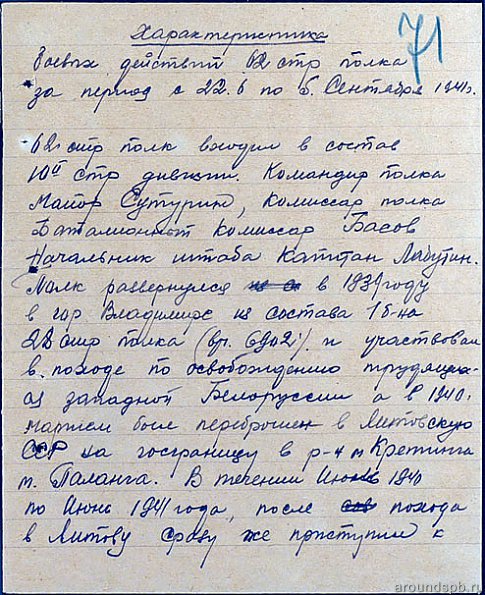 71
Характеристика
боевых действий 62 стр полка
за период с 22.6 по 5. Сентября 1941г.
62 стр полк входил в состав
10й стр дивизии. Командир полка
Майор Сутурин, комиссар полка
Баталионный Комиссар Басов
Начальник штаба Капитан
Полк развернулся в 1939 году
в гор Владимире из состава 1 б-на
22 стр полка и участвовал
в походе по освобождению трудящих-
ся западной Белоруссии а в 1940г.
маршем был переброшен в Литовскую
ССР на госграницу в р-н м Кретинга
м. Паланга. В течении Июнь 1940
по Июнь 1941 года, после похода
в Литову сразу же приступил к
aroundspb.ru